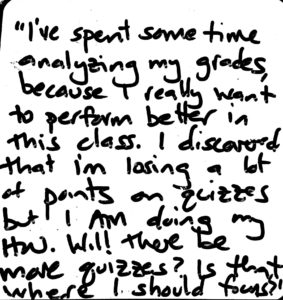 "I've spent some time
analyzing my grades,
because I really want
to perform better in
this class. I discovered
that i'm losing a lot
of points on quizzes
but I AM doing my
HW. Will there be
more quizzes? Is that
where I should focus?"